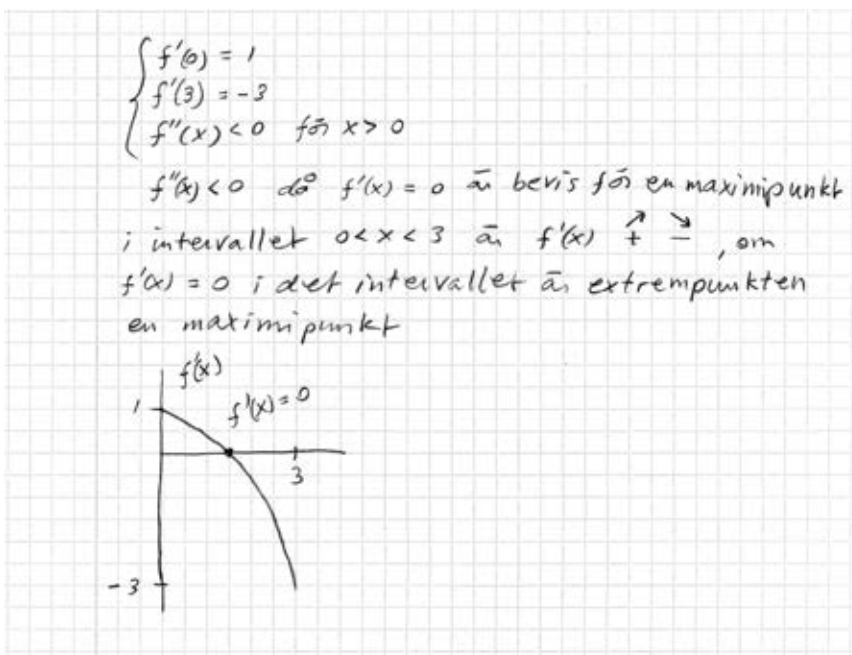 f'(0) = 1
f'(3) = -3
f''(x) < 0 för x > 0
f''(x) < 0 då f'(x) = 0 är bevis för en maximipunkt
i intervallet 0 < x < 3 är f'(x) + ↗ - ↘, om
f'(x) = 0 i det intervallet är extrempunkten
en maximipunkt
f'(x)
1
f'(x) = 0
3
-3